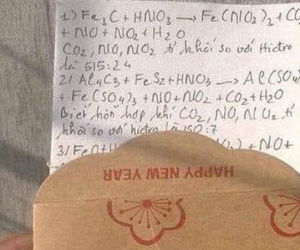 1) Fe3C + HNO3 → Fe(NO3)2 + CO2
+ NO + NO2 + H2O
CO2, NO, NO2 tỉ khối so với Hiđro
là 515:24
2) Al4C3 + FeS2 + HNO3 → Al(SO4)
+ Fe(SO4)3 + NO + NO2 + CO2 + H2O
Biết hỗn hợp khí CO2, NO, NO2 tỉ
khối so với hiđro là 150:7
3) FeO + H
) + NO +
HAPPY NEW YEAR